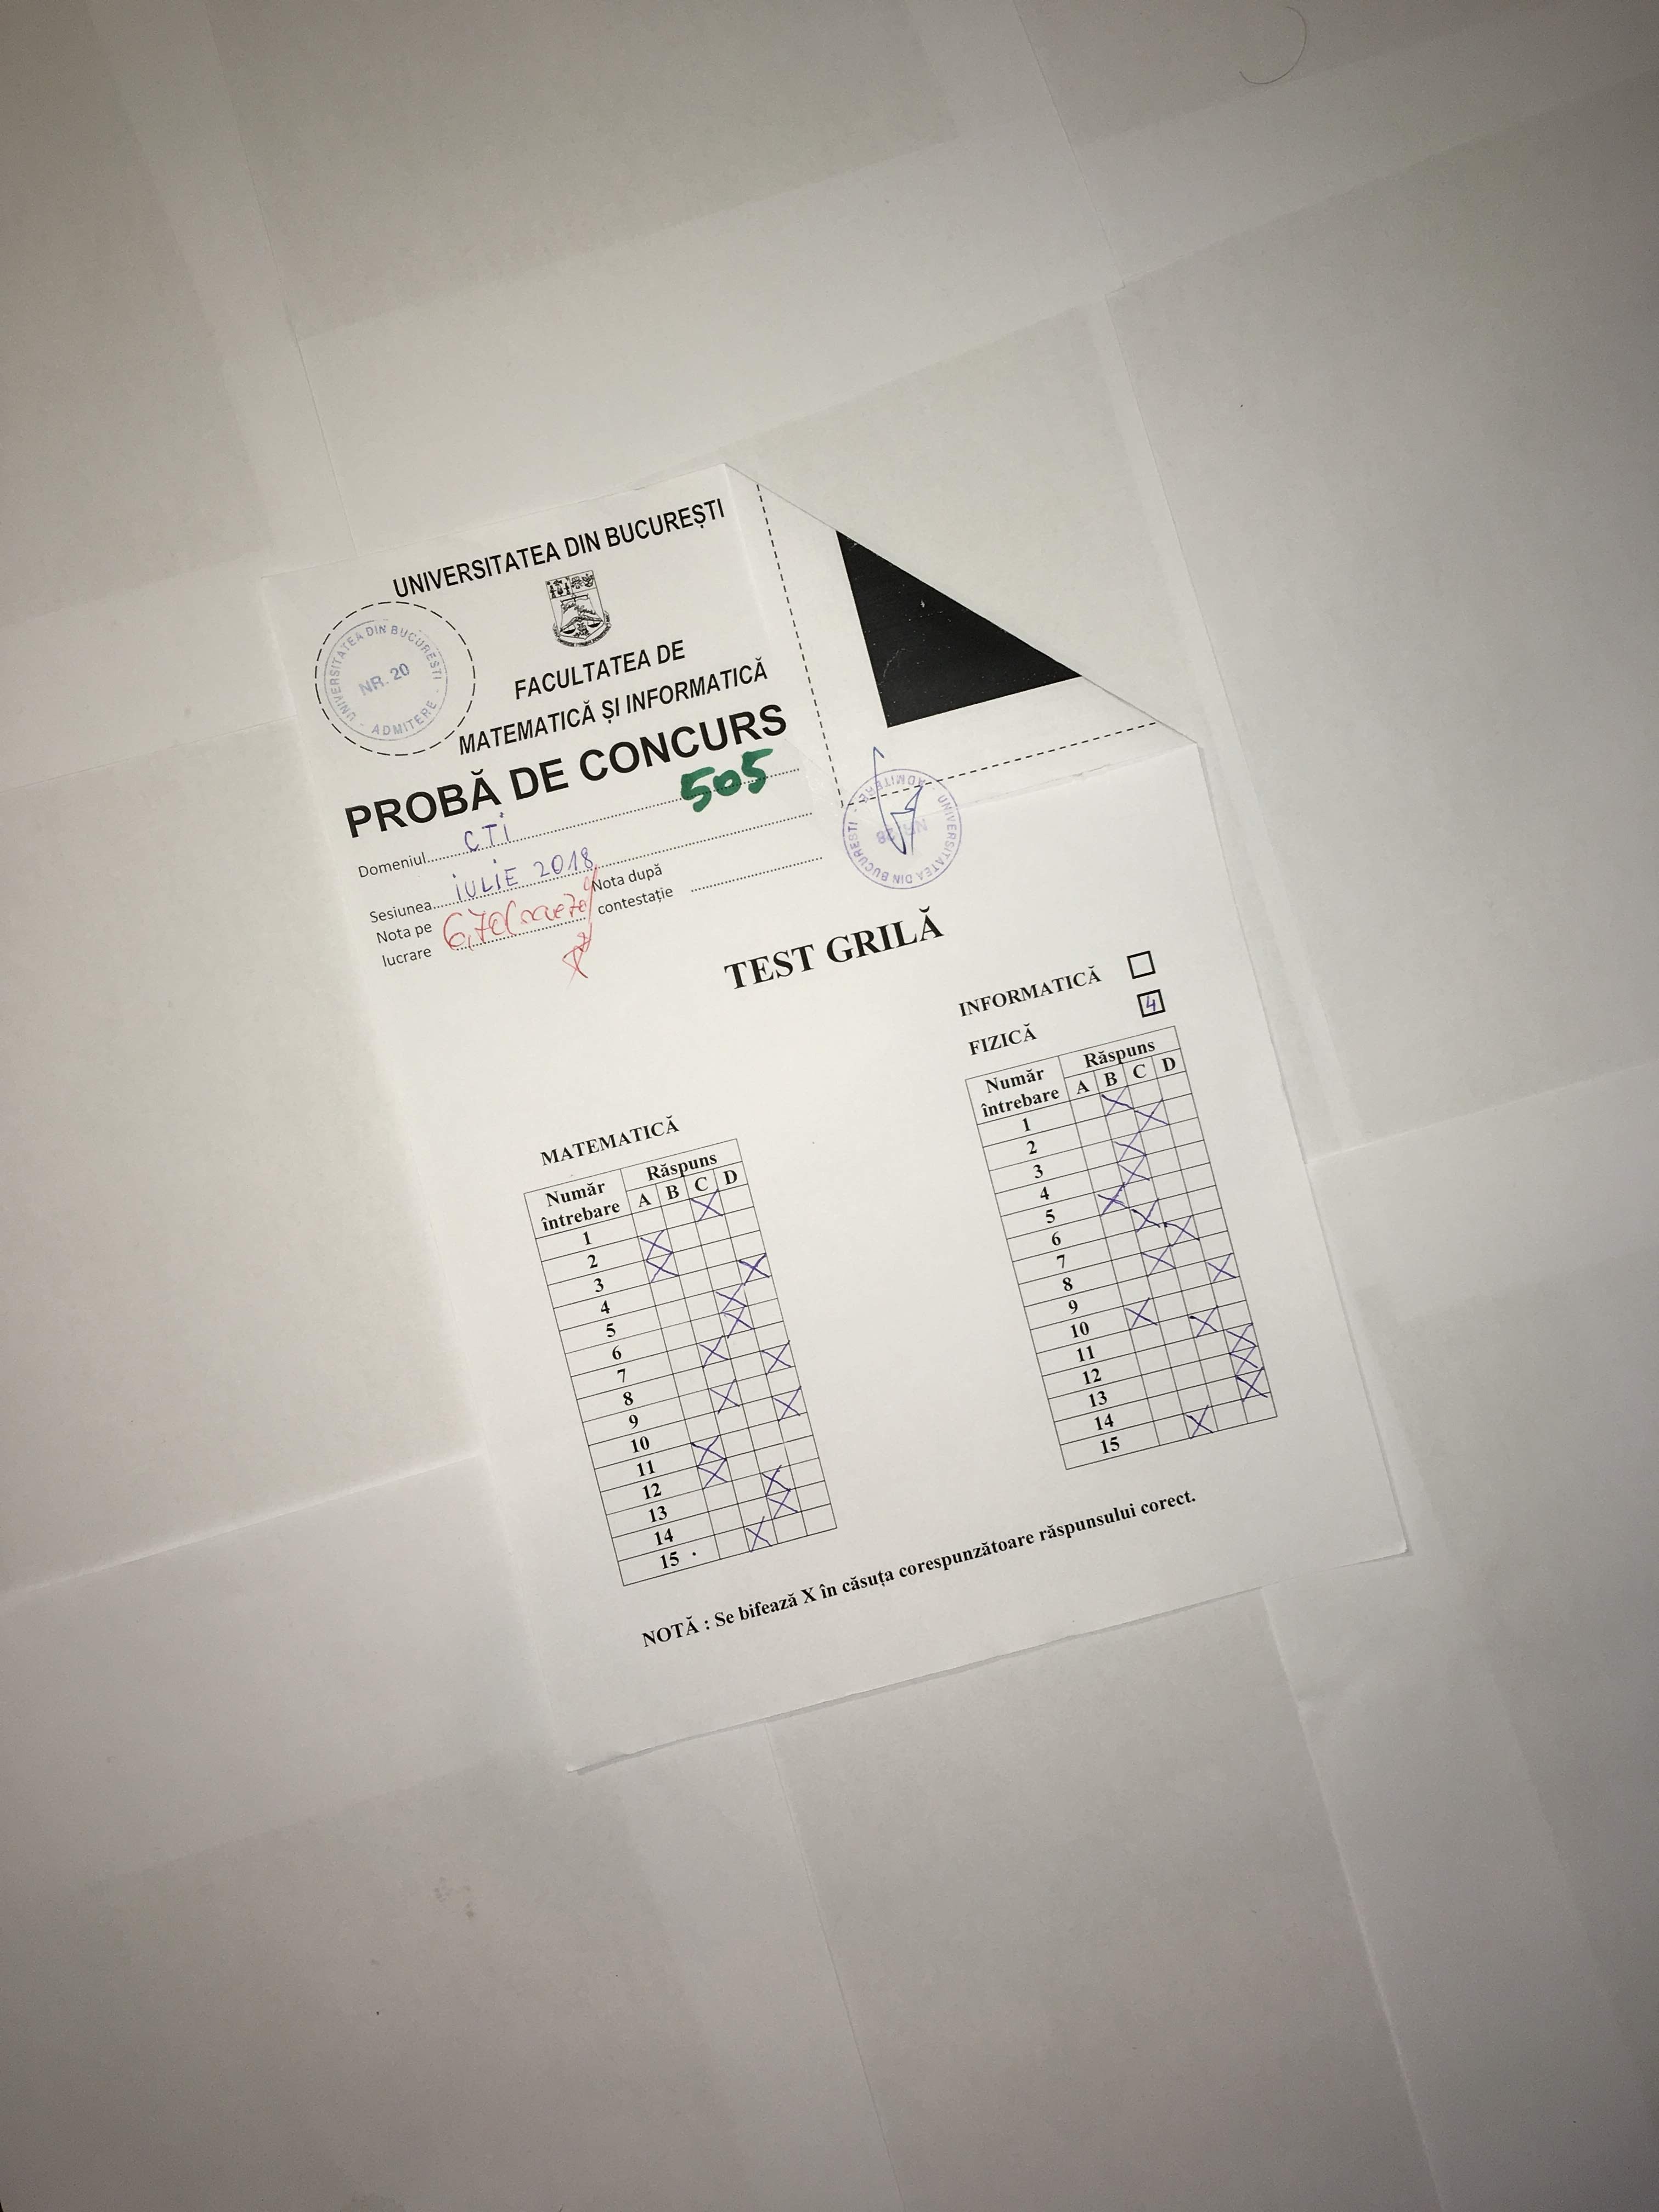 UNIVERSITATEA DIN BUCUREȘTI
UNIVERSITATEA DIN BUCUREȘTI - ADMITERE -
NR. 20
FACULTATEA DE
MATEMATICĂ ȘI INFORMATICĂ
PROBĂ DE CONCURS
505
Domeniul CTI
Sesiunea IULIE 2018
Nota pe lucrare 6,70
Nota după contestație
UNIVERSITATEA DIN BUCUREȘTI - ADMITERE -
NR. 28
TEST GRILĂ
MATEMATICĂ
Număr întrebare Răspuns
A B C D
1 X
2 X
3 X
4 X
5 X
6 X
7 X
8 X
9 X
10 X
11 X
12 X
13 X
14 X
15 X
INFORMATICĂ
FIZICĂ 4
Număr întrebare Răspuns
A B C D
1 X
2 X
3 X
4 X
5 X
6 X
7 X
8 X
9 X
10 X
11 X
12 X
13 X
14 X
15 X
NOTĂ : Se bifează X în căsuța corespunzătoare răspunsului corect.